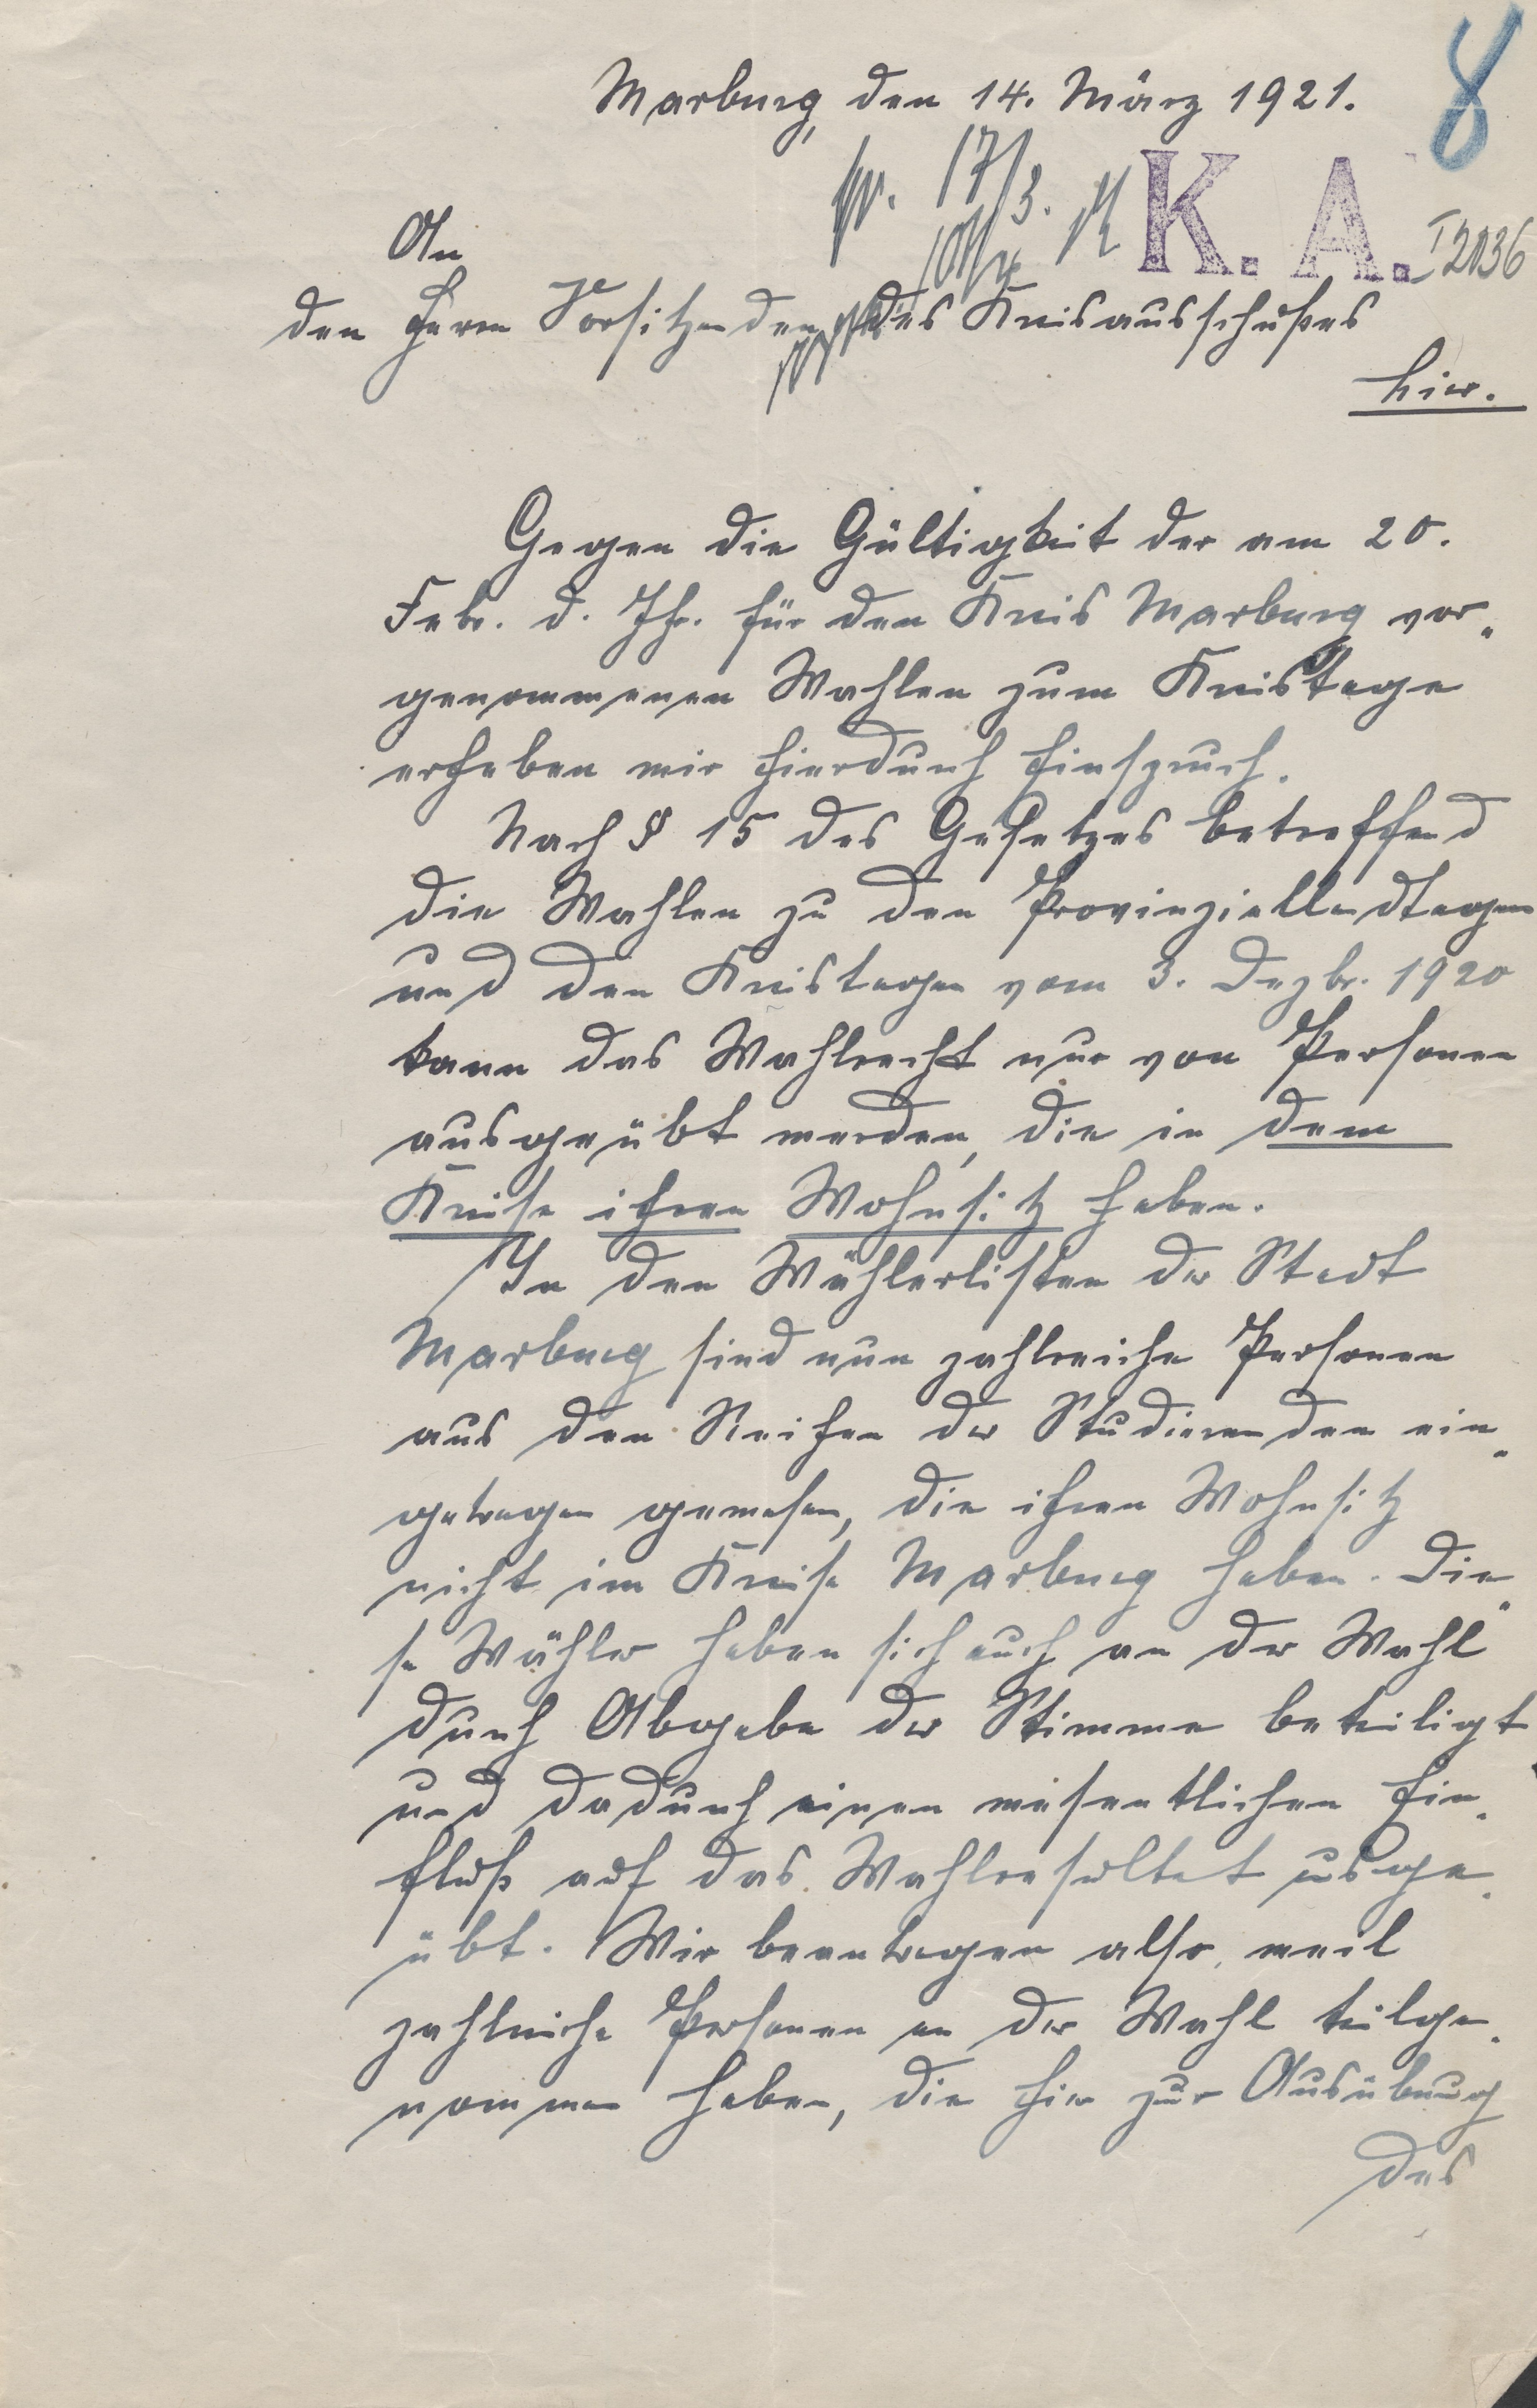 8
Marburg, den 14. März 1921.
pr. 17/3.
K. A. I 2036
An
den Herrn Vorsitzenden des Kreisausschußes
hier.
Gegen die Gültigkeit der am 20.
Febr. d. Jhr. für den Kreis Marburg vor-
genommenen Wahlen zum Kreistage
erheben wir hierdurch Einspruch.
Nach § 15 des Gesetzes betreffend
die Wahlen zu den Provinziallandtagen
und den Kreistagen vom 3. Dezbr. 1920
kann das Wahlrecht nur von Personen
ausgeübt werden, die in dem
Kreise ihren Wohnsitz haben.
In den Wählerlisten der Stadt
Marburg sind nun zahlreiche Personen
aus den Reihen der Studierenden ein-
getragen gewesen, die ihren Wohnsitz
nicht im Kreise Marburg haben. Die-
se Wähler haben sich auch an der Wahl
durch Abgabe der Stimme beteiligt
und dadurch einen wesentlichen Ein-
fluß auf das Wahlresultat ausge-
übt. Wir beantragen also, weil
zahlreiche Personen an der Wahl teilge-
nommen haben, die hier zur Ausübung
des